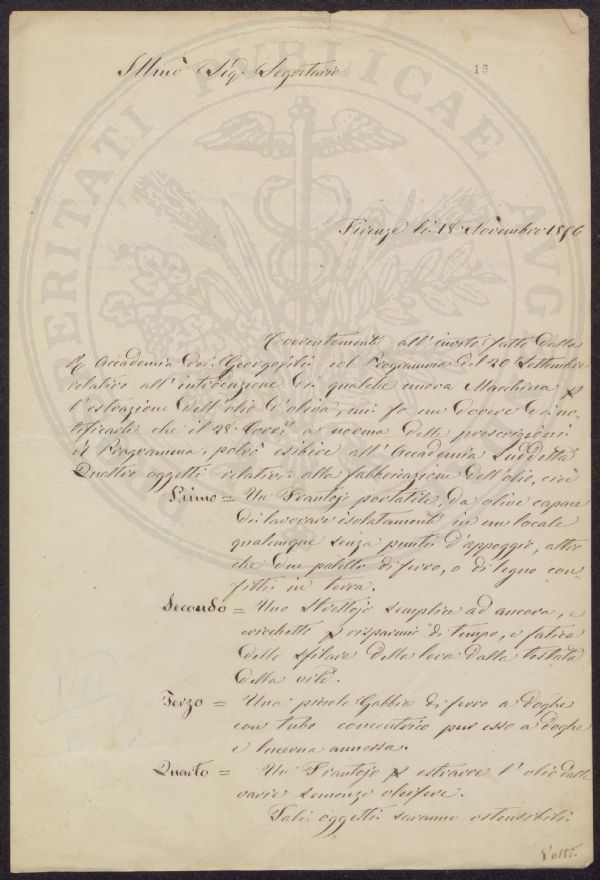 Illmo Sig. Segretario
15
Firenze li 18 Novembre 1856
Coerentemente all'invito fatto dalla
R. Accademia dei Georgofili col Programma del 20 Settembre
relativo all'introduzione di qualche nuova Macchina p
l'estrazione dell'olio d'oliva, mi fo un dovere di no-
tificarle che il 28 Corr. a norma delle prescrizioni
del Programma, potrò esibire all'Accademia Suddetta
Quattro oggetti relativi alla fabbricazione dell'olio, cioè
Primo = Un Frantojo portatile, da olive capace
di lavorare isolatamente in un locale
qualunque senza punti d'appoggio, altro
che due paletti di ferro, o di legno con-
fitti in terra.
Secondo = Uno Strettojo semplice ad ancora, e
cricchetti p risparmio di tempo, e fatica
dello sfilare della leva dalla testata
della vite.
Terzo = Una piccola Gabbia di ferro a doghe
con tubo concentrico pur esso a doghe
e lucerna annessa.
Quarto = Un Frantojo p estrarre l'olio dalle
varie semenze oleifere.
Tali oggetti saranno ostensibili
Volti
PERITATI PUBLICAE AUG